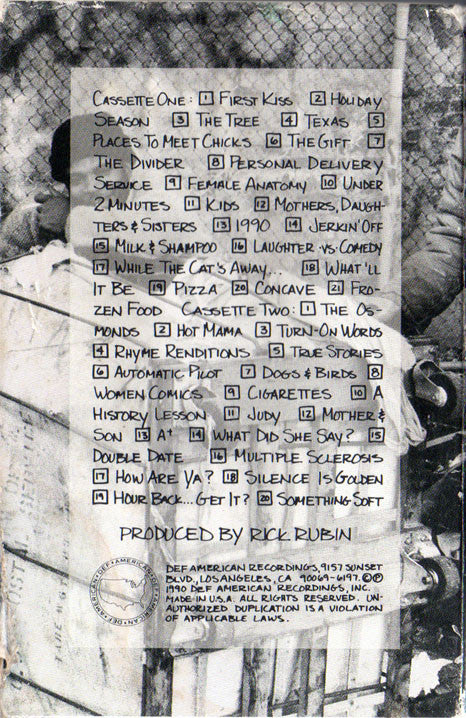 CASSETTE ONE: 1 FIRST KISS 2 HOLIDAY
SEASON 3 THE TREE 4 TEXAS 5
PLACES TO MEET CHICKS 6 THE GIFT 7
THE DIVIDER 8 PERSONAL DELIVERY
SERVICE 9 FEMALE ANATOMY 10 UNDER
2 MINUTES 11 KIDS 12 MOTHERS, DAUGH-
TERS & SISTERS 13 1990 14 JERKIN' OFF
15 MILK & SHAMPOO 16 LAUGHTER -VS- COMEDY
17 WHILE THE CAT'S AWAY... 18 WHAT'LL
IT BE 19 PIZZA 20 CONCAVE 21 FRO-
ZEN FOOD CASSETTE TWO: 1 THE OS-
MONDS 2 HOT MAMA 3 TURN-ON WORDS
4 RHYME RENDITIONS 5 TRUE STORIES
6 AUTOMATIC PILOT 7 DOGS & BIRDS 8
WOMEN COMICS 9 CIGARETTES 10 A
HISTORY LESSON 11 JUDY 12 MOTHER &
SON 13 A+ 14 WHAT DID SHE SAY? 15
DOUBLE DATE 16 MULTIPLE SCLEROSIS
17 HOW ARE YA? 18 SILENCE IS GOLDEN
19 HOUR BACK... GET IT? 20 SOMETHING SOFT
PRODUCED BY RICK RUBIN
DEF AMERICAN RECORDINGS, 9157 SUNSET
BLVD., LOS ANGELES, CA 90069-6197. ©℗
1990 DEF AMERICAN RECORDINGS, INC.
MADE IN U.S.A. ALL RIGHTS RESERVED. UN-
AUTHORIZED DUPLICATION IS A VIOLATION
OF APPLICABLE LAWS.
DEF • AMERICAN • DEF • AMERICAN •